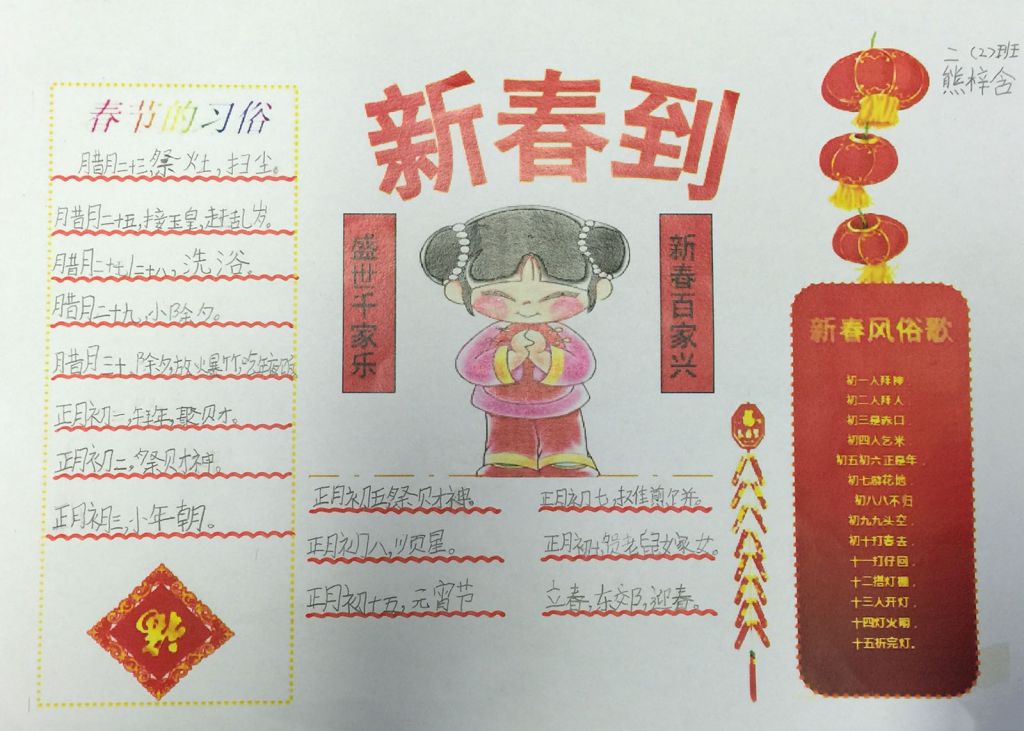 二(2)班
熊梓含
新春到
春节的习俗
腊月二十三,祭灶,扫尘。
腊月二十五,接玉皇,赶乱岁。
腊月二十七/二十八,洗浴。
腊月二十九,小除夕。
腊月三十,除夕,放火爆竹,吃年夜饭
正月初一,拜年,聚财。
正月初二,祭财神。
正月初三,小年朝。
福
盛世千家乐
新春百家兴
正月初五祭财神。
正月初七,
正月初八,顺星。
正月初十,
正月初十五,元宵节
立春,东郊,迎春。
新春风俗歌
初一人拜神
初二人拜人.
初三是赤口.
初四人乞米.
初五初六正是年.
初七游花地.
初八八不归
初九九头空.
初十打春去.
十一打仔回.
十二搭灯棚.
十三人开灯.
十四灯火明.
十五折完灯。